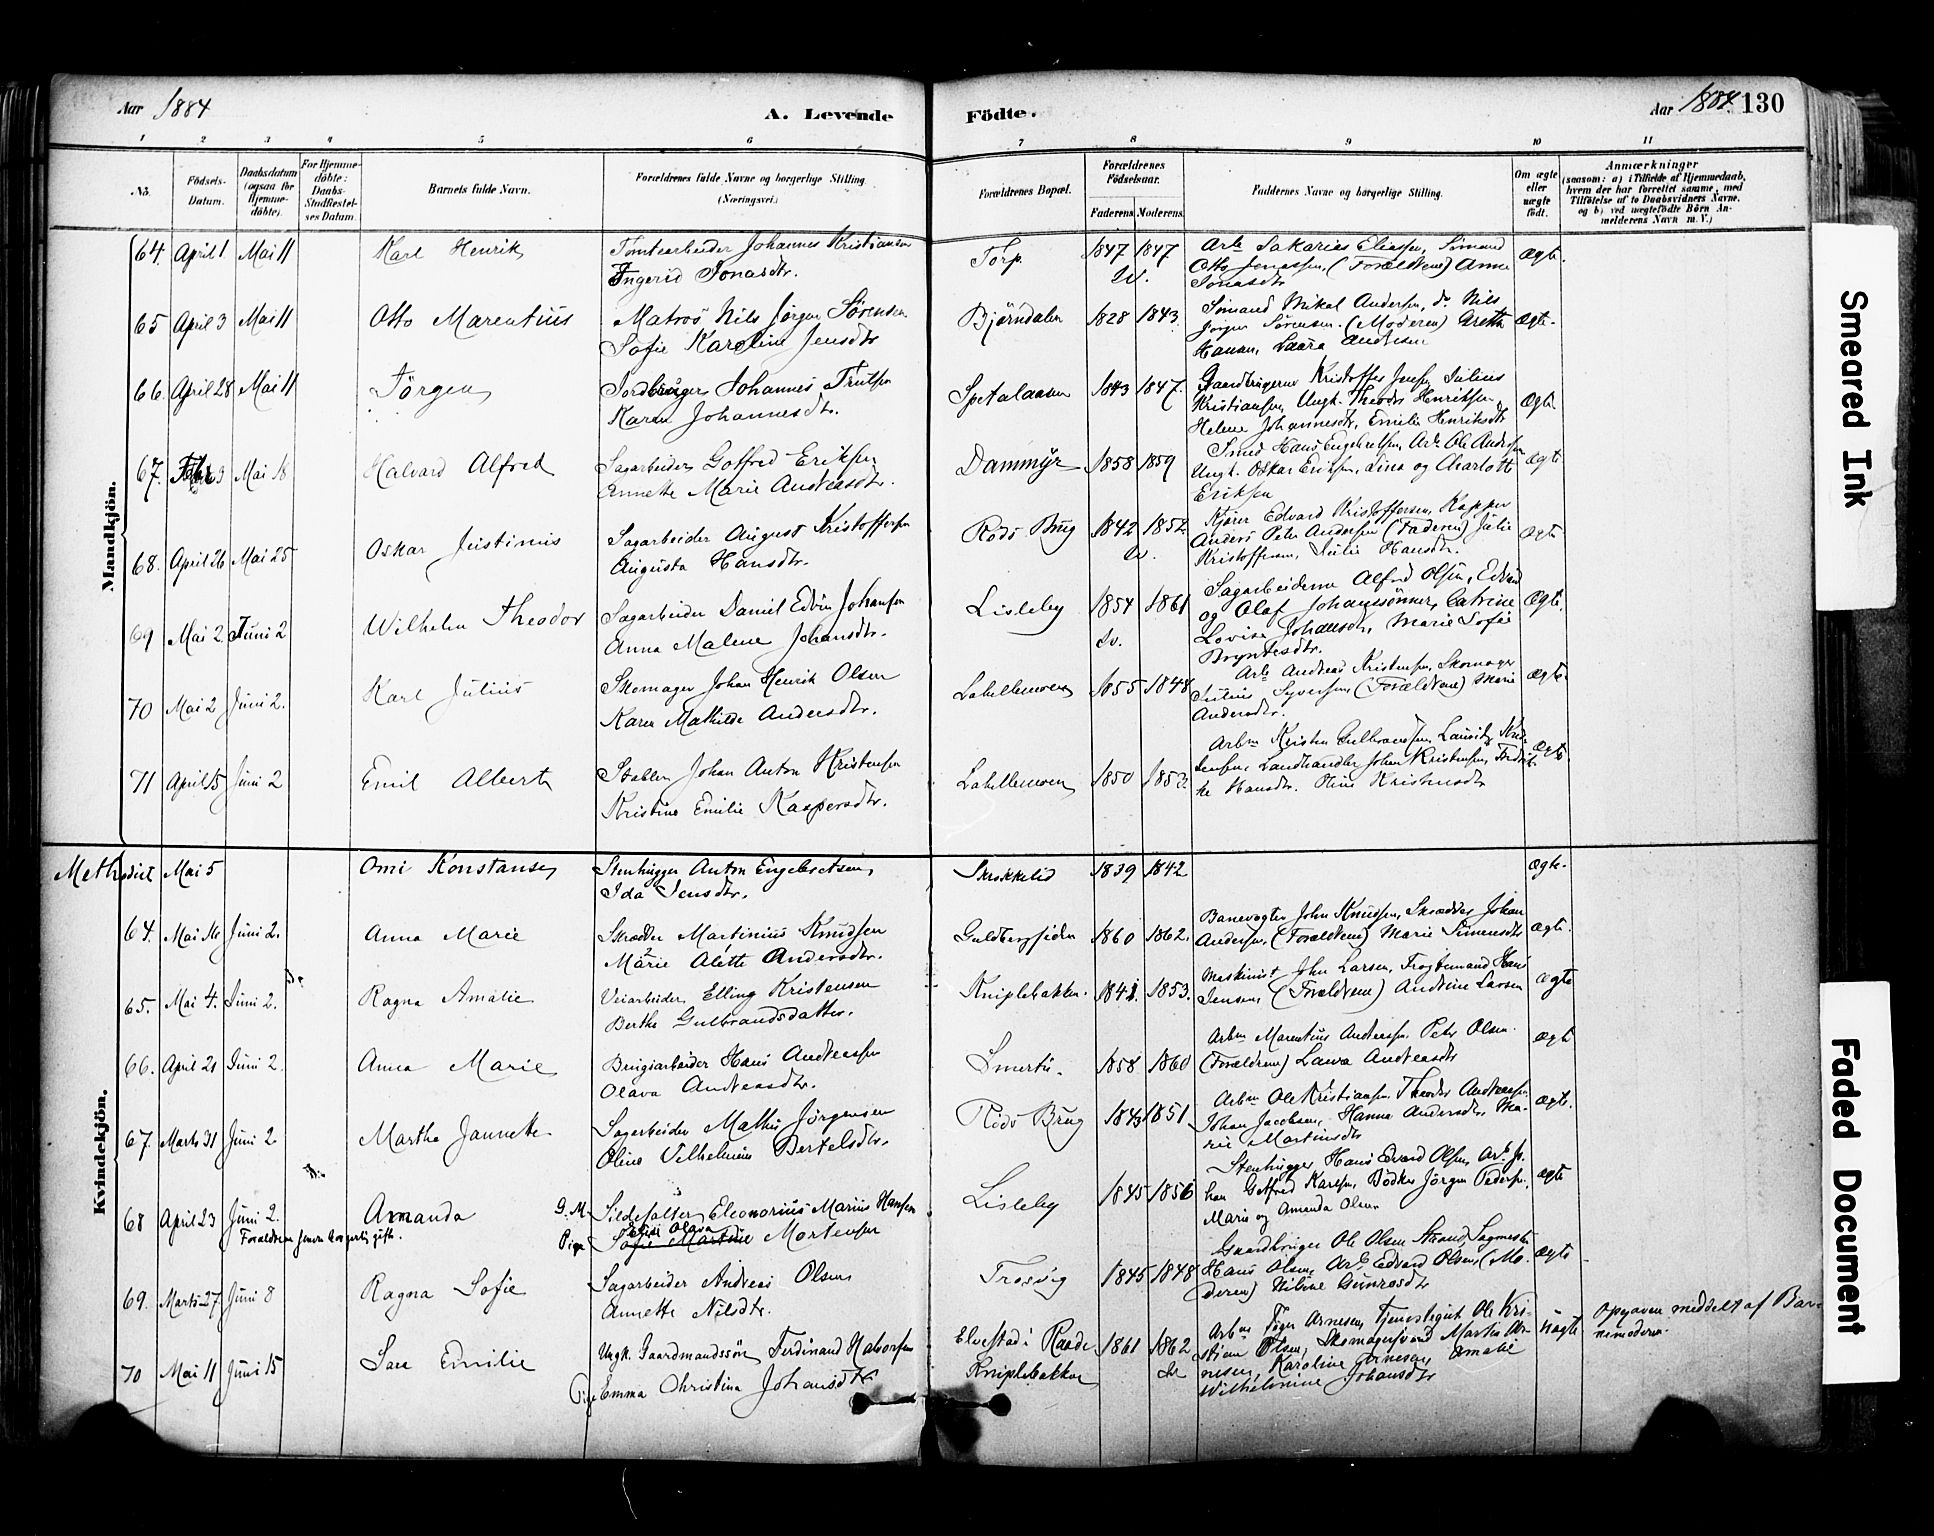 Aar 1884
A. Levende
Födte.
Aar 1884 130
1 2 3 4 5 6 7 8 9 10 11
No.
Födsels-Datum.
Daabsdatum (ogsaa for Hjemme-döbte).
For Hjemme-döbte: Daabs-Stadfæstel-ses Datum.
Barnets fulde Navn.
Forældrenes fulde Navne og borgerlige Stilling (Næringsvei.)
Forældrenes Bopæl.
Forældrenes Födselsaar.
Faderens Moderens.
Faddernes Navne og borgerlige Stilling.
Om ægte eller uægte födt.
Anmærkninger
(saasom: a) i Tilfælde af Hjemmedaab,
hvem der har forrettet samme, med
Tilföielse af to Daabsvidners Navne,
og b) ved uægtefödte Börn An-
melderens Navn m. V.)
Mandkjön.
64. April 1. Mai 11 Karl Henrik Tomtearbeider Johannes Kristiansen Torp. 1847 1847 Arb. Sakarias Eliassen, Sömand Ægte.
Ingerid Jonasdtr. Otto Jonassen, (Forældrene) Anne
Jonasdtr
65 April 3 Mai 11 Otto Marentius Matros Nils Jørgen Sørensen Bjørndalen 1828 1843. Sömand Mikal Andersen, do Nils Ægte.
Sofie Karoline Jensdtr Jørgen Sørensen. (Moderen) Grethe
Hansen, Laura Andersen
66. April 28 Mai 11 Jörgen Jordbruger Johannes Trulsen Spetalaasen 1843 1847. Gaardbrugerne Kristoffer Jensen, Julius Ægte.
Karen Johannesdtr. Kristiansen, Ungk. Theodor Henriksen,
Helene Johannesdtr, Emilie Henriksdtr
67. Mai 18 Halvard Alfred Sagarbeider Gotfred Eriksen Dammyr 1858 1859 Smed Hans Engebretsen, Arb. Ole Andersen Ægte
Annette Marie Andreasdtr. Ungk. Oskar Eriksen, Lina og Charlotte
Eriksen
68. April 26 Mai 25 Oskar Justinus Sagarbeider August Kristoffersen Röds Brug 1842 1852. Kjører Edvard Kristoffersen, Ægte
Augusta Hansdtr. Anders Peter Andersen (Faderen) Julie
Kristoffersen, Julie Hansdtr.
69 Mai 2 Juni 2 Wilhelm Theodor Sagarbeider Daniel Edvin Johansen Lisleby 1854 1861 Sagarbeiderne Alfred Olsen, Edvard Ægte.
Anna Malene Johansdtr. og Olaf Johanssönner, Catrine
Lovise Johansdtr, Marie Sofie
Bryntesdtr.
70 Mai 2 Juni 2. Karl Julius Skomager Johan Henrik Olsen Labellemoen 1855 1848 Arb. Andreas Kristensen, Skomager Ægte.
Karen Mathilde Andersdtr. Julius Syversen, (Forældrene) Marie
Andersdtr.
71 April 15 Juni 2 Emil Albert Johan Anton Kristensen Labellemoen 1850 1853. Arbm Kristen Gulbrandsen, Ægte
Kristine Emilie Kaspersdtr. Landhandler Johan Kristensen,
Hansdtr. Oline Kristensdtr
Methodist Mai 5 Omi Konstanse Stenhugger Anton Engebretsen, Skrikkelid 1839 1842 Ægte.
Ida Jensdtr.
Kvindekjön.
64. Mai 16 Juni 2. Anna Marie Skrædder Martinius Knudsen Guldbergsiden 1860 1862. Banevogter John Knudsen, Skrædder Johan Ægte.
Marie Alette Andersdtr. Andersen, (Forældrene) Marie Simensdtr
65. Mai 4. Juni 2. Ragna Amalie Veiarbeider Elling Kristensen Kniplebakken. 1841. 1853. Maskinist John Larsen, Hans Ægte
Berthe Gulbrandsdatter. Jensen, (Forældrene) Andrine Larsen
66. April 21 Juni 2. Anna Marie Brugsarbeider Hans Andreassen Smertu. 1858 1860 Arbm Marentius Andreassen, Peter Olsen. Ægte
Olava Andreasdtr. (Forældrene) Laura Andreasdtr
67. Marts 31 Juni 2 Martha Jannette Sagarbeider Mathis Jörgensen Röds Brug 1843 1851 Arbm Ole Kristiansen, Theodor Andreassen, Ægte.
Oline Vilhelmine Bertelsdtr. Johan Jacobsen, Hanna Andersdtr, Ma-
rie Martinsdtr
68 April 23 Juni 2. Amanda G. M. Sildesalter Eleonorius Marius Hansen Lisleby 1845 1856 Stenhugger Hans Edvard Olsen, Arb. Jo- Ægte
Forældrene senere borgerlig gift. Pige Olava Sofie Martine Mortensen han Gotfred Karlsen, Bödker Jörgen Pedersen,
Marie og Amanda Olsen
69. Marts 27 Juni 8 Ragna Sofie Sagarbeider Andreas Olsen Trosvig 1845 1848 Gaardbruger Ole Olsen Strand, Sagmester Ægte
Annette Nilsdtr. Hans Olsen, Arb. Edvard Olsen, (Mo-
deren) Gunrosdtr
70 Mai 11 Juni 15 Sara Emilie Ungk. Gaardmandssön Ferdinand Halvorsen Elvestad i Raade 1861 1862 Arbm Arnesen, Tjenestegut Ole Kri- Uægte Opgaven meddelt af Bar-
Pige Emma Christina Johansdtr Kniplebakken stian Olsen, Skomagersvend Martin Ar- nemoderen.
nesen, Karoline Arnesen, Amalie
Wilhelmine Johansdtr
Smeared Ink
Faded Document